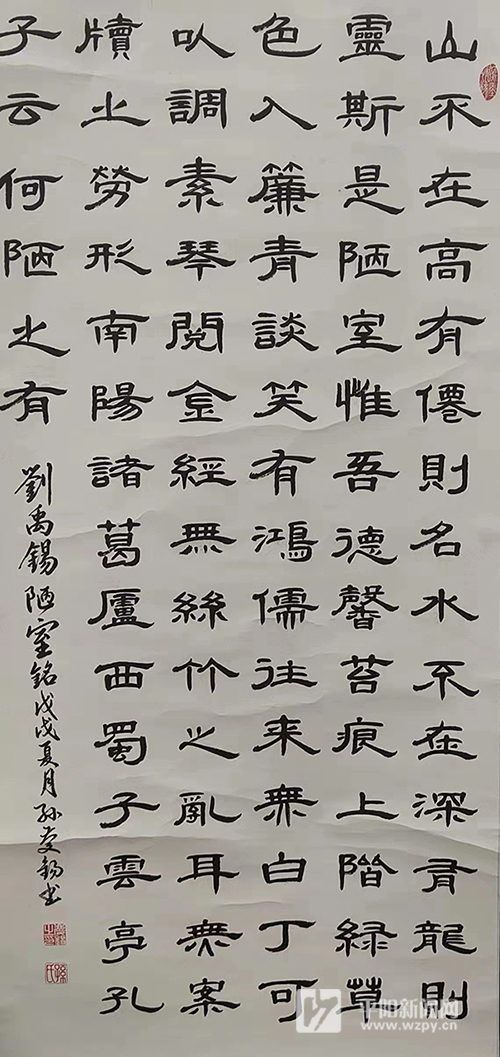 山不在高有僊則名水不在深有龍則
靈斯是陋室惟吾德馨苔痕上階緑草
色入簾青談笑有鴻儒往来無白丁可
以調素琴閲金經無絲竹之亂耳無案
牘之勞形南陽諸葛廬西蜀子雲亭孔
子云何陋之有
劉禹錫陋室銘戊戌夏月孫錫书
平阳新闻网
www.wzpy.cn